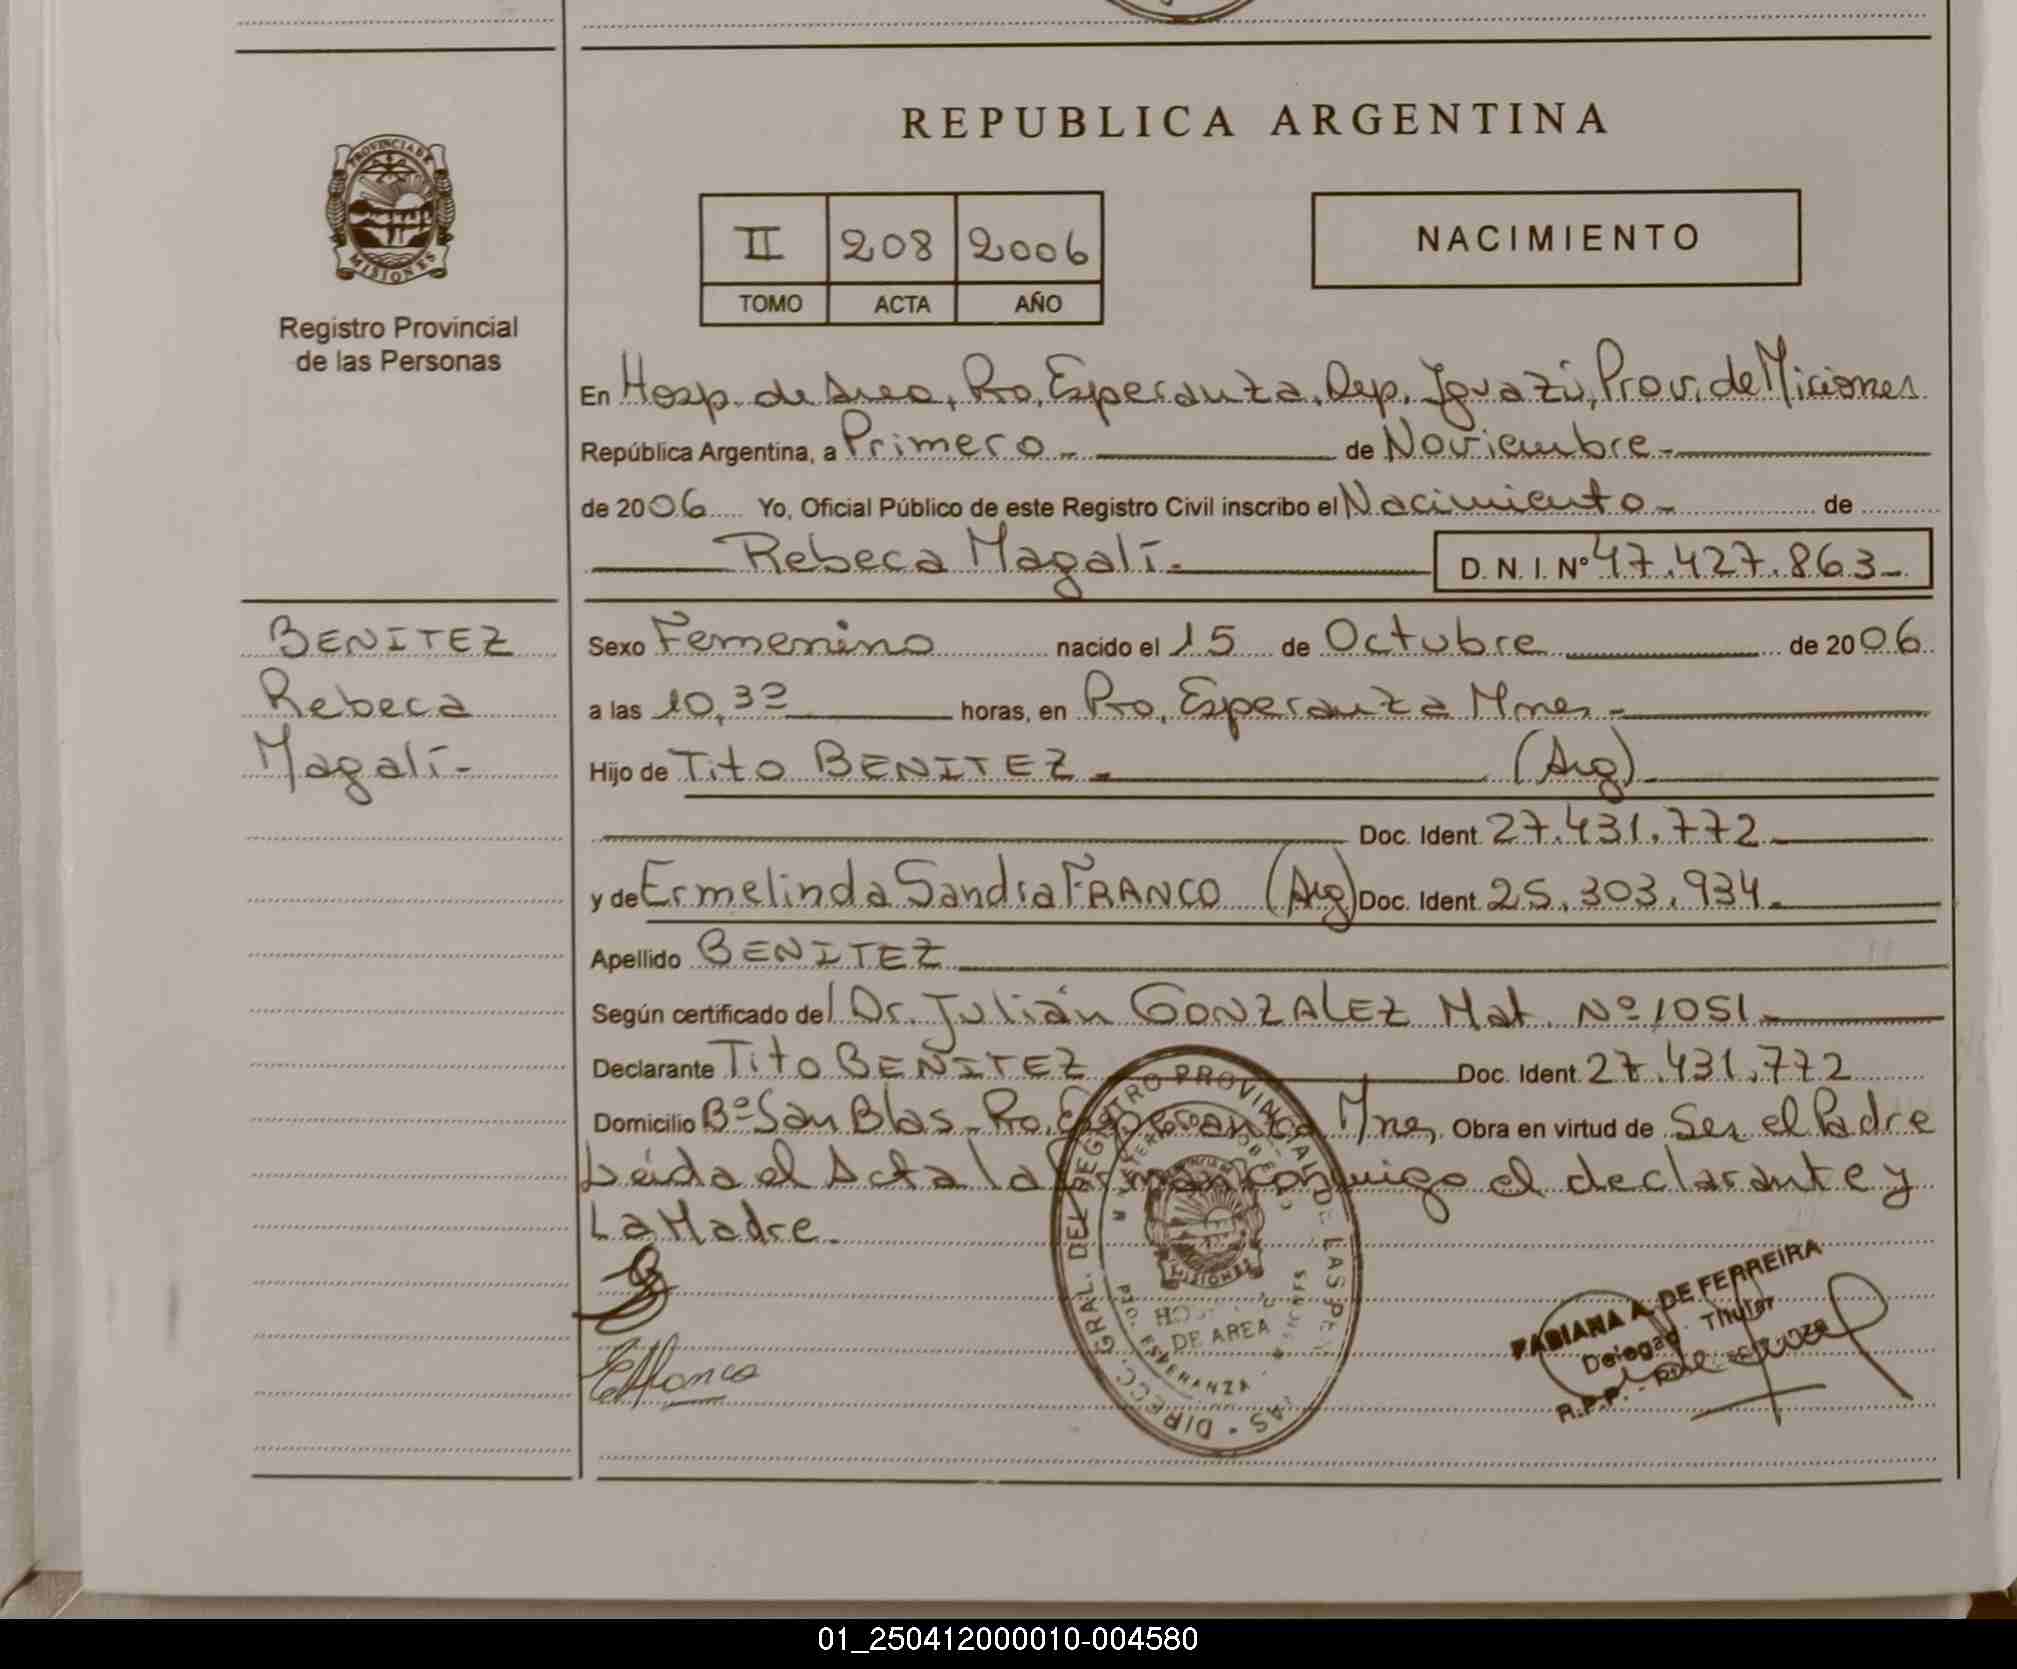 REPUBLICA ARGENTINA
PROVINCIA DE
MISIONES
Registro Provincial
de las Personas
II 208 2006
TOMO ACTA AÑO
NACIMIENTO
En Hosp. de Area, Pto. Esperanza, Dep. Iguazú, Prov. de Miciones
República Argentina, a Primero.- de Noviembre.-
de 2006 Yo, Oficial Público de este Registro Civil inscribo el Nacimiento.- de
Rebeca Magalí.- D. N. I. Nº 47.427.863.-
BENITEZ
Rebeca
Magalí.-
Sexo Femenino nacido el 15 de Octubre de 2006
a las 10,30 horas, en Pto. Esperanza Mnes.-
Hijo de Tito BENITEZ.- (Arg)
Doc. Ident. 27.431.772.
y de Ermelinda Sandra FRANCO (Arg) Doc. Ident. 25.303.934.
Apellido BENITEZ
Según certificado del Dr. Julián GONZALEZ Mat. Nº 1051.-
Declarante Tito BENITEZ Doc. Ident. 27.431.772
Domicilio Bº San Blas - Pto. Esperanza Mnes. Obra en virtud de Ser el Padre
Leída el Acta la firman conmigo el declarante y
La Madre.
DIRECC. GRAL. DEL REGISTRO PROVINCIAL DE LAS PE
MISIONES
DE AREA
ESPERANZA
EFranco
FABIANA A. DE FERREIRA
Delegad Titular
R.P.P.
01_250412000010-004580